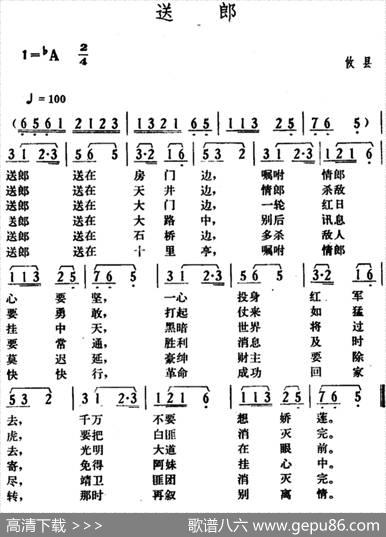 送 郎
1=♭A 2/4
攸县
♩=100
(6561 2123 | 1321 65 | 113 25 | 76 5) |
31 2·3 | 56 5 | 3·2 16 | 5 | 53 2 | 31 2·3 | 121 6 |
送郎 送在 房门 边, 嘱咐 情郎
送郎 送在 天井 边, 情郎 杀敌
送郎 送在 大门 边, 一轮 红日
送郎 送在 大路 中, 别后 讯息
送郎 送在 石桥 边, 多杀 敌人
送郎 送在 十里 亭, 嘱咐 情郎
113 25 | 76 5 | 31 2·3 | 56 53 | 3·2 16 |
心要 坚, 一心 投身 红军
要勇 敢, 打起 仗来 如猛
挂中 天, 黑暗 世界 将过
要常 通, 胜利 消息 及时
莫迟 延, 豪绅 财主 要除
快快 行, 革命 成功 回家
53 2 | 31 2·3 | 121 6 | 113 25 | 76 5 |
去, 千万 不要 想娇 莲。
虎, 要把 白匪 消灭 完。
去, 光明 大道 在眼 前。
寄, 免得 阿妹 挂心 中。
尽, 靖卫 匪团 消灭 完。
转, 那时 再叙 别离 情。
高清下载 >>>
歌谱八六 www.gepu86.com